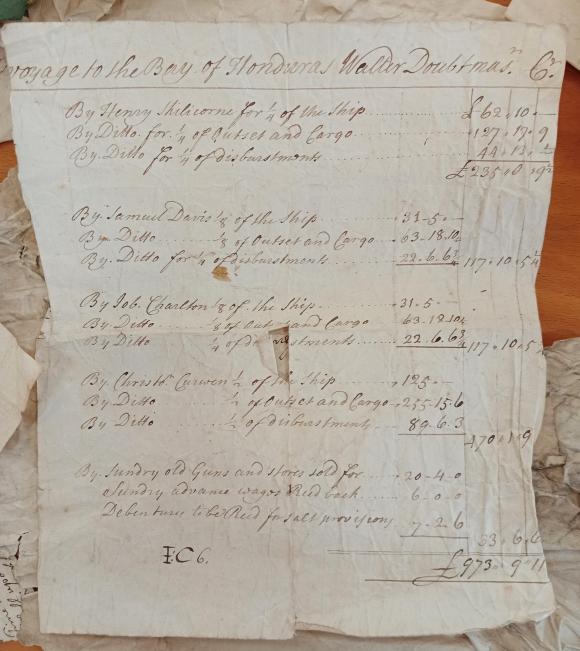 voyage to the Bay of Honduras Walter Doubt masr. Cr
By Henry Skilicorne for ¼ of the Ship £ 62 „ 10 „ —
By Ditto for ¼ of Outset and Cargo 127 „ 17 „ 9
By Ditto for ¼ of disburstments 44 „ 13 „
£ 235 „ 0 „ 9
By Samuel Davis ⅛ of the Ship 31 - 5 -
By Ditto ⅛ of Outset and Cargo 63 - 18 - 10½
By Ditto for ¼ of disburstments 22 . 6 . 6¾ 117 „ 10 „ 5¼
By Job. Charlton ⅛ of the Ship 31 - 5 -
By Ditto ⅛ of Outs and Cargo 63 - 18 10½
By Ditto ¼ of stments 22 . 6 . 6¾ 117 „ 10 „ 5
By Christo. Curwen ½ of the Ship 125 „ —
By Ditto ½ of Outset and Cargo 255 - 15 . 6
By Ditto ½ of disburstments 89 . 6 . 3
470 „ 1 „ 9
By Sundry old Guns and stores sold for 20 - 4 - 0
Sundry advance wages Reid back 6 - 0 - 0
Debenture to be Reid for salt provisions 7 - 2 - 6
33 „ 6 „ 6
£ 973 „ 9 „ 11
I C 6.